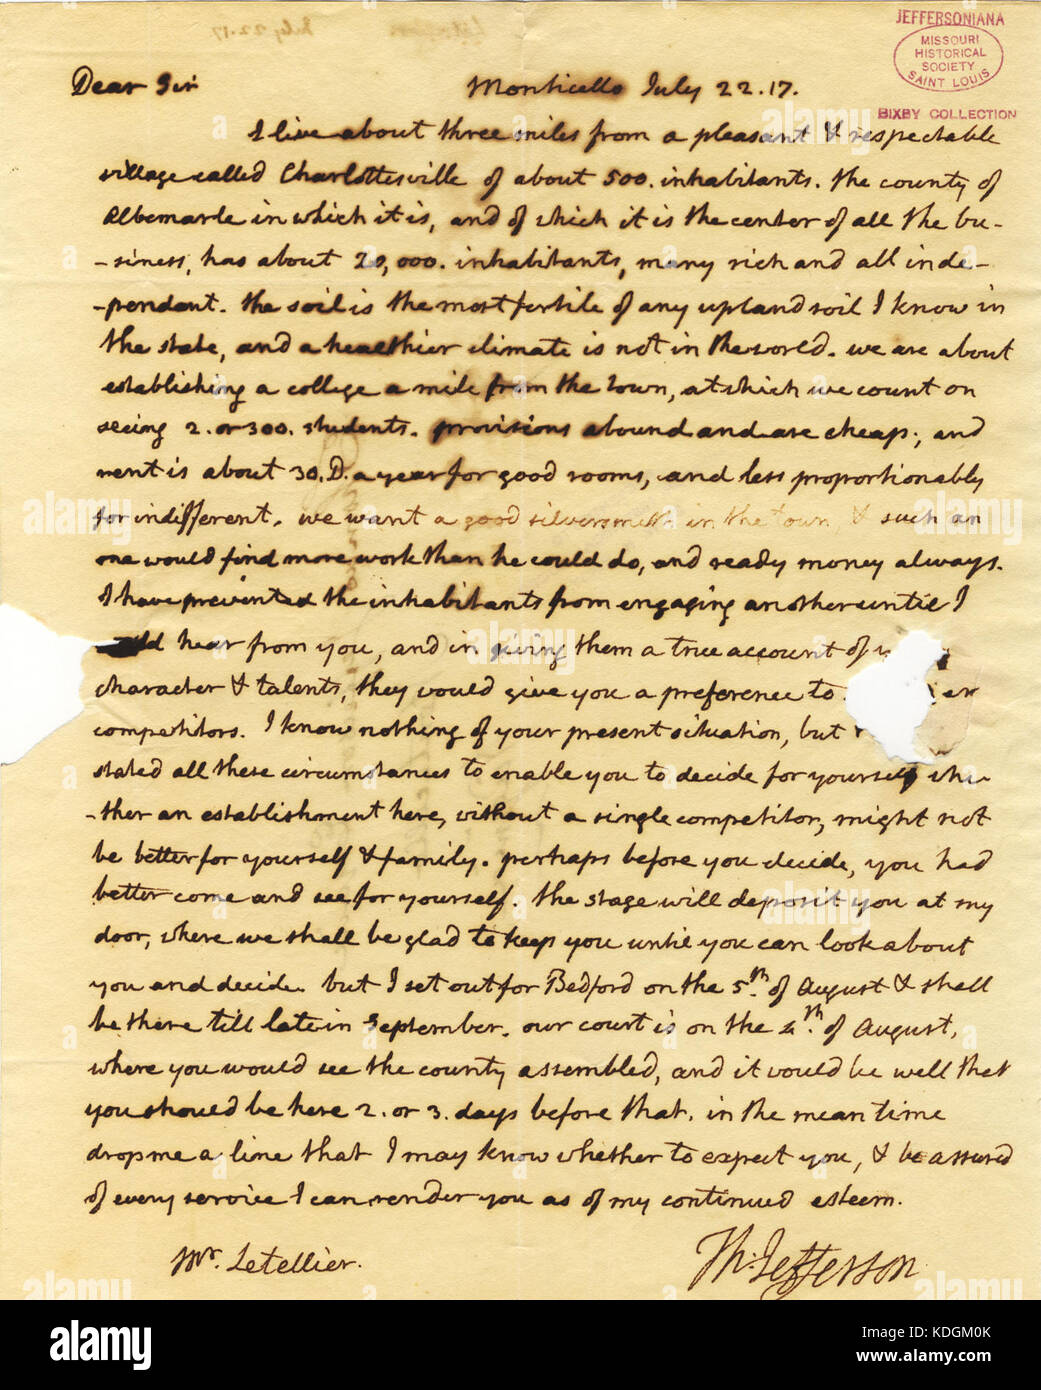 JEFFERSONIANA
MISSOURI
HISTORICAL
SOCIETY
SAINT LOUIS
BIXBY COLLECTION
Dear Sir Monticello July 22. 17.
I live about three miles from a pleasant & respectable
village called Charlottesville of about 500. inhabitants. the county of
Albemarle in which it is, and of which it is the center of all the bu-
-siness, has about 20,000. inhabitants, many rich and all inde-
-pendent. the soil is the most fertile of any upland soil I know in
the state, and a healthier climate is not in the world. we are about
establishing a college a mile from the town, at which we count on
seeing 2. or 300. students. provisions abound and are cheap; and
rent is about 30. D. a year for good rooms, and less proportionably
for indifferent. we want a good silversmith in the town & such an
one would find more work than he could do, and ready money always.
I have prevented the inhabitants from engaging another until I
hear from you, and in giving them a true account of
character & talents, they would give you a preference to
competitors. I know nothing of your present situation, but
stated all these circumstances to enable you to decide for yourself whe-
-ther an establishment here, without a single competitor, might not
be better for yourself & family. perhaps before you decide, you had
better come and see for yourself. the stage will deposit you at my
door, where we shall be glad to keep you until you can look about
you and decide. but I set out for Bedford on the 5th. of August & shall
be there till late in September. our court is on the 4th. of August,
where you would see the county assembled, and it would be well that
you should be here 2. or 3. days before that. in the mean time
drop me a line that I may know whether to expect you, & be assured
of every service I can render you as of my continued esteem.
Th: Jefferson
Mr. Letellier.
alamy
Image ID: KDGM0K
www.alamy.com